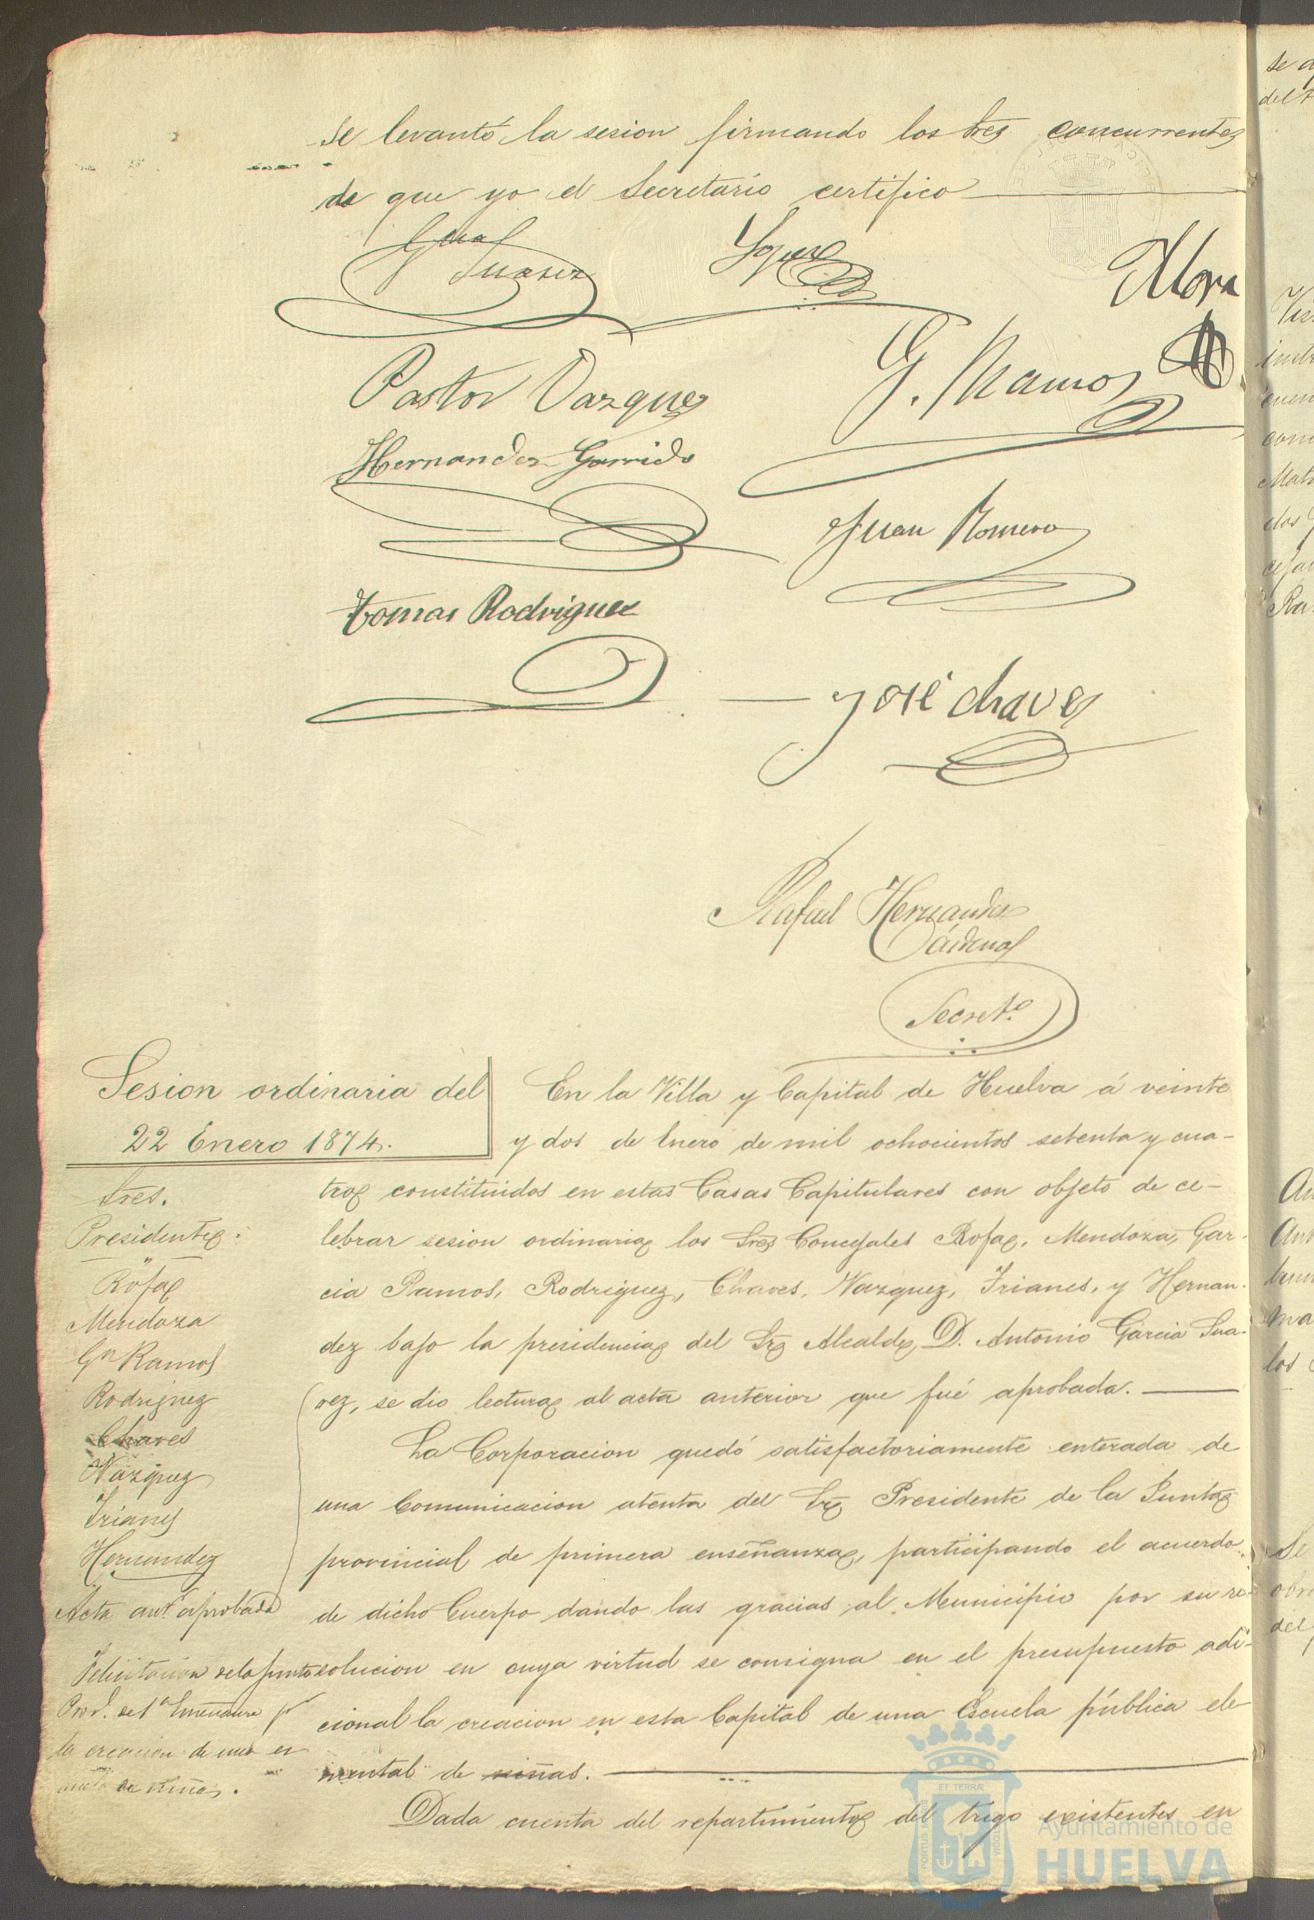 se levantó la sesion firmando los Sres concurrentes
de que yo el Secretario certifico
Gcia
Suarez
Mora
Pastor Vazquez
G. Ramos
Hernandez Garrido
Juan Romero
Tomas Rodriguez
José Chaves
Rafael Hernandez
Cárdenas
Secret.º
Sesion ordinaria del
22 Enero 1874.
Sres.
Presidente.
Rofa
Mendoza
Gª Ramos
Rodriguez
Chaves
Vazquez
Trianes
Hernandez
Acta antr aprobada
Felicitacion de la Junta
Prov.l de 1ª Enseñanza pr
la creacion de una es
cuela de niñas.
En la Villa y Capital de Huelva á veinte
y dos de Enero de mil ochocientos setenta y cua-
tro constituidos en estas Casas Capitulares con objeto de ce-
lebrar sesion ordinaria los Sres Concejales Rofa, Mendoza, Gar-
cia Ramos, Rodriguez, Chaves, Vazquez, Trianes, y Hernan-
dez bajo la presidencia del Sr Alcalde D. Antonio Garcia Sua-
rez, se dio lectura al acta anterior que fué aprobada.
La Corporacion quedó satisfactoriamente enterada de
una comunicacion atenta del Sr Presidente de la Junta
provincial de primera enseñanza, participando el acuerdo
de dicho Cuerpo dando las gracias al Municipio por su re-
solucion en cuya virtud se consigna en el presupuesto adi-
cional la creacion en esta Capital de una Escuela pública ele-
mental de niñas.
Dada cuenta del repartimiento del trigo existentes en
Ayuntamiento de
HUELVA